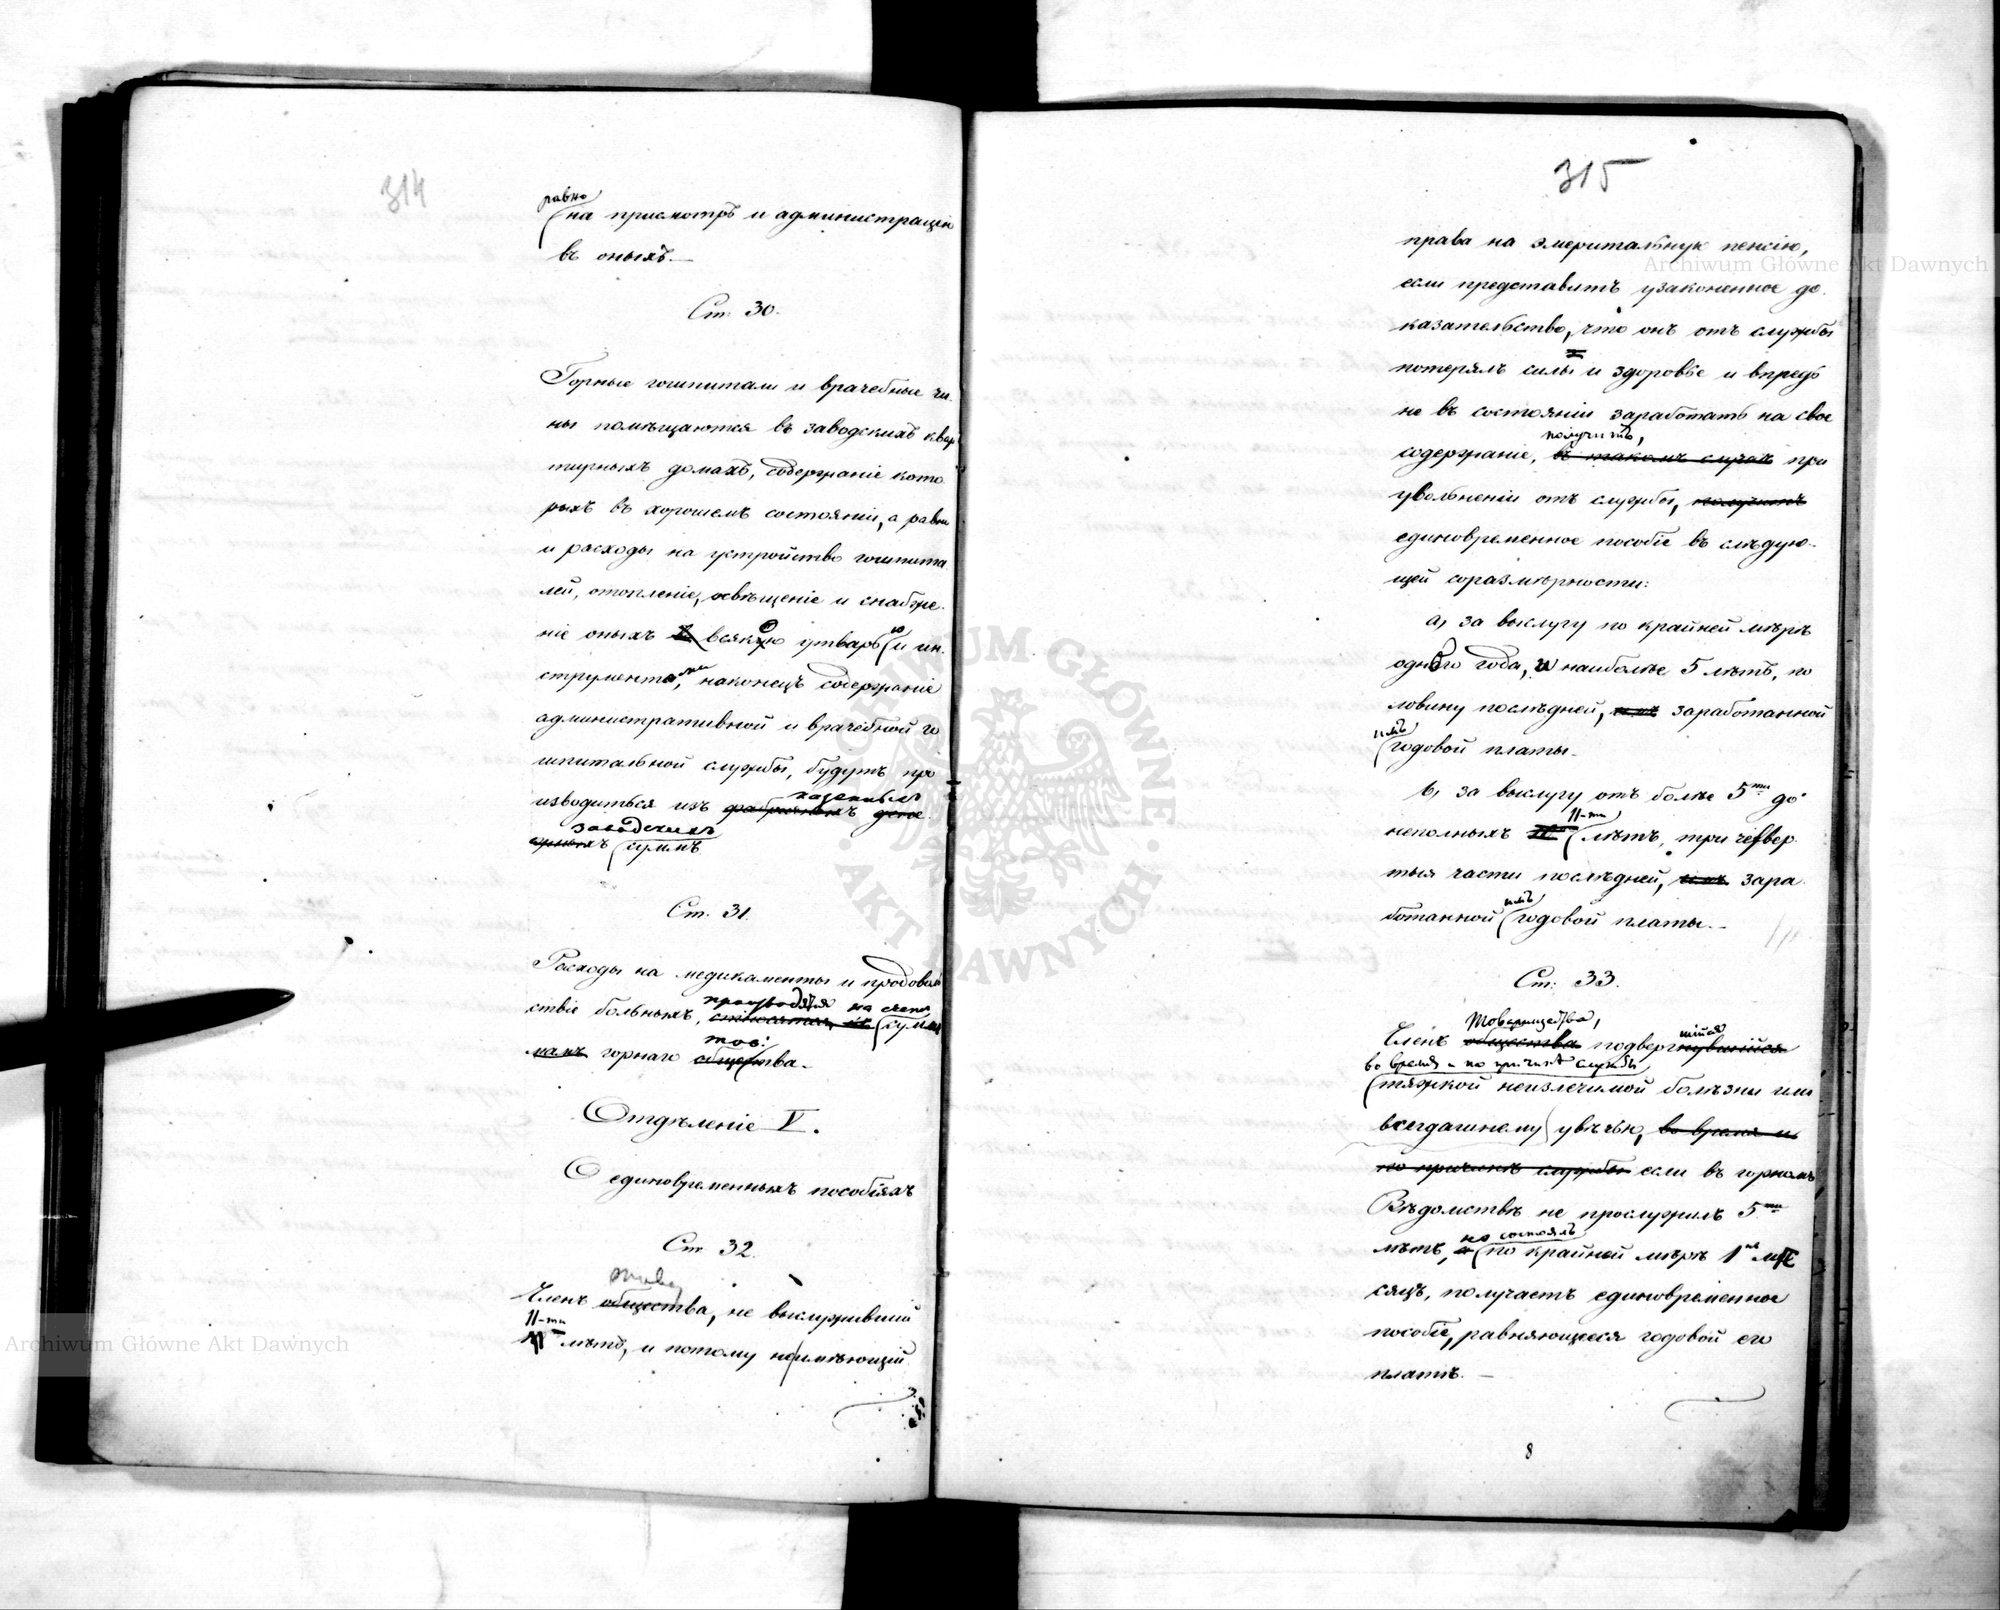 314
равно
на присмотръ и администрацію
въ оныхъ.—
Ст. 30.
Горные гошпитали и врачебные чи-
ны помѣщаются въ заводскихъ квар
тирныхъ домахъ, содержаніе кото
рыхъ въ хорошемъ состояніи, а равно
и расходы на устройство гошпита
лей, отопленіе, освѣщеніе и снабже-
ніе оныхъ всякою утварью и ин-
струментами, наконецъ содержаніе
административной и врачебной го
шпитальной службы, будутъ про
изводиться изъ фабричныхъ
казенныхъ
заводскихъ
суммъ
Ст. 31.
Расходы на медикаменты и продоволь
ствіе больныхъ, относятся къ сум
производятся на счетъ
мамъ горнаго общества.
тов:
Отдѣленіе V.
О единовременныхъ пособіяхъ
Ст 32.
това
Членъ общества, не выслужившій
11-ти
лѣтъ, и потому неимѣющій
315
права на эмеритальную пенсію,
если представитъ узаконенное до-
казательство, что онъ отъ службы
потерялъ силы и здоровье и впредь
не въ состояніи заработать на свое
получитъ,
содержаніе, въ такомъ случаѣ при
увольненіи отъ службы, получитъ
единовременное пособіе въ слѣдую-
щей соразмѣрности:
а, за выслугу по крайней мѣрѣ
одного года, и наиболѣе 5 лѣтъ, по
ловину послѣдней, имъ заработанной
имъ
годовой платы.
b, за выслугу отъ болѣе 5ти до
11-ти
неполныхъ лѣтъ, три четвер
тыя части послѣдней, имъ зара
ботанной годовой платы.—
имъ
Ст: 33.
Товарищества,
Членъ общества подвергнувшійся
шійся
во время и по причинѣ службы
тяжкой неизлечимой болѣзни или
всегдашнему увѣчью, во время и
по причинѣ службы если въ горномъ
Вѣдомствѣ не прослужилъ 5ти
но состоялъ
лѣтъ, а по крайней мѣрѣ 1нъ мѣ
сяцъ, получаетъ единовременное
пособіе, равняющееся годовой его
платѣ.—
8
Archiwum Główne Akt Dawnych
Archiwum Główne Akt Dawnych
ARCHIWUM GŁÓWNE · AKT DAWNYCH ·